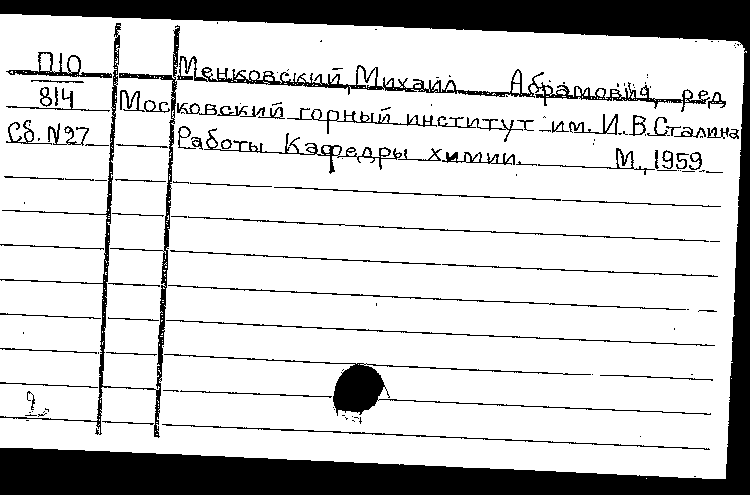 П10 Менковский, Михаил Абрамович, ред
814 Московский горный институт им. И.В.Сталина
Сб. N27 Работы Кафедры химии. М., 1959
2